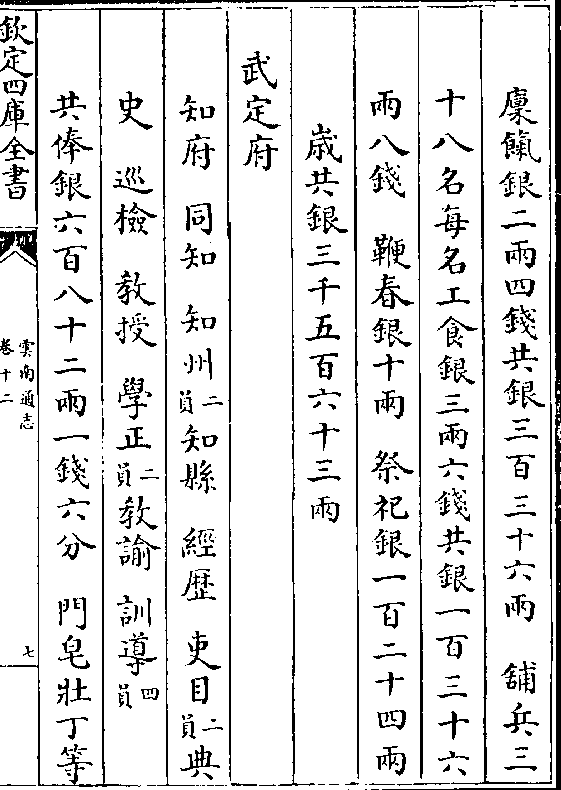 廩餼銀二兩四錢共銀三百三十六兩　舖兵三
十八名每名工食銀三兩六錢共銀一百三十六
兩八錢　鞭春銀十兩　祭祀銀一百二十四兩
歲共銀三千五百六十三兩
武定府
知府　同知　知州二員知縣　經歷　吏目二員典
史　巡檢　教授　學正二員教諭　訓導四員
共俸銀六百八十二兩一錢六分　門皂壯丁等
欽定四庫全書
雲南通志
卷十二
七